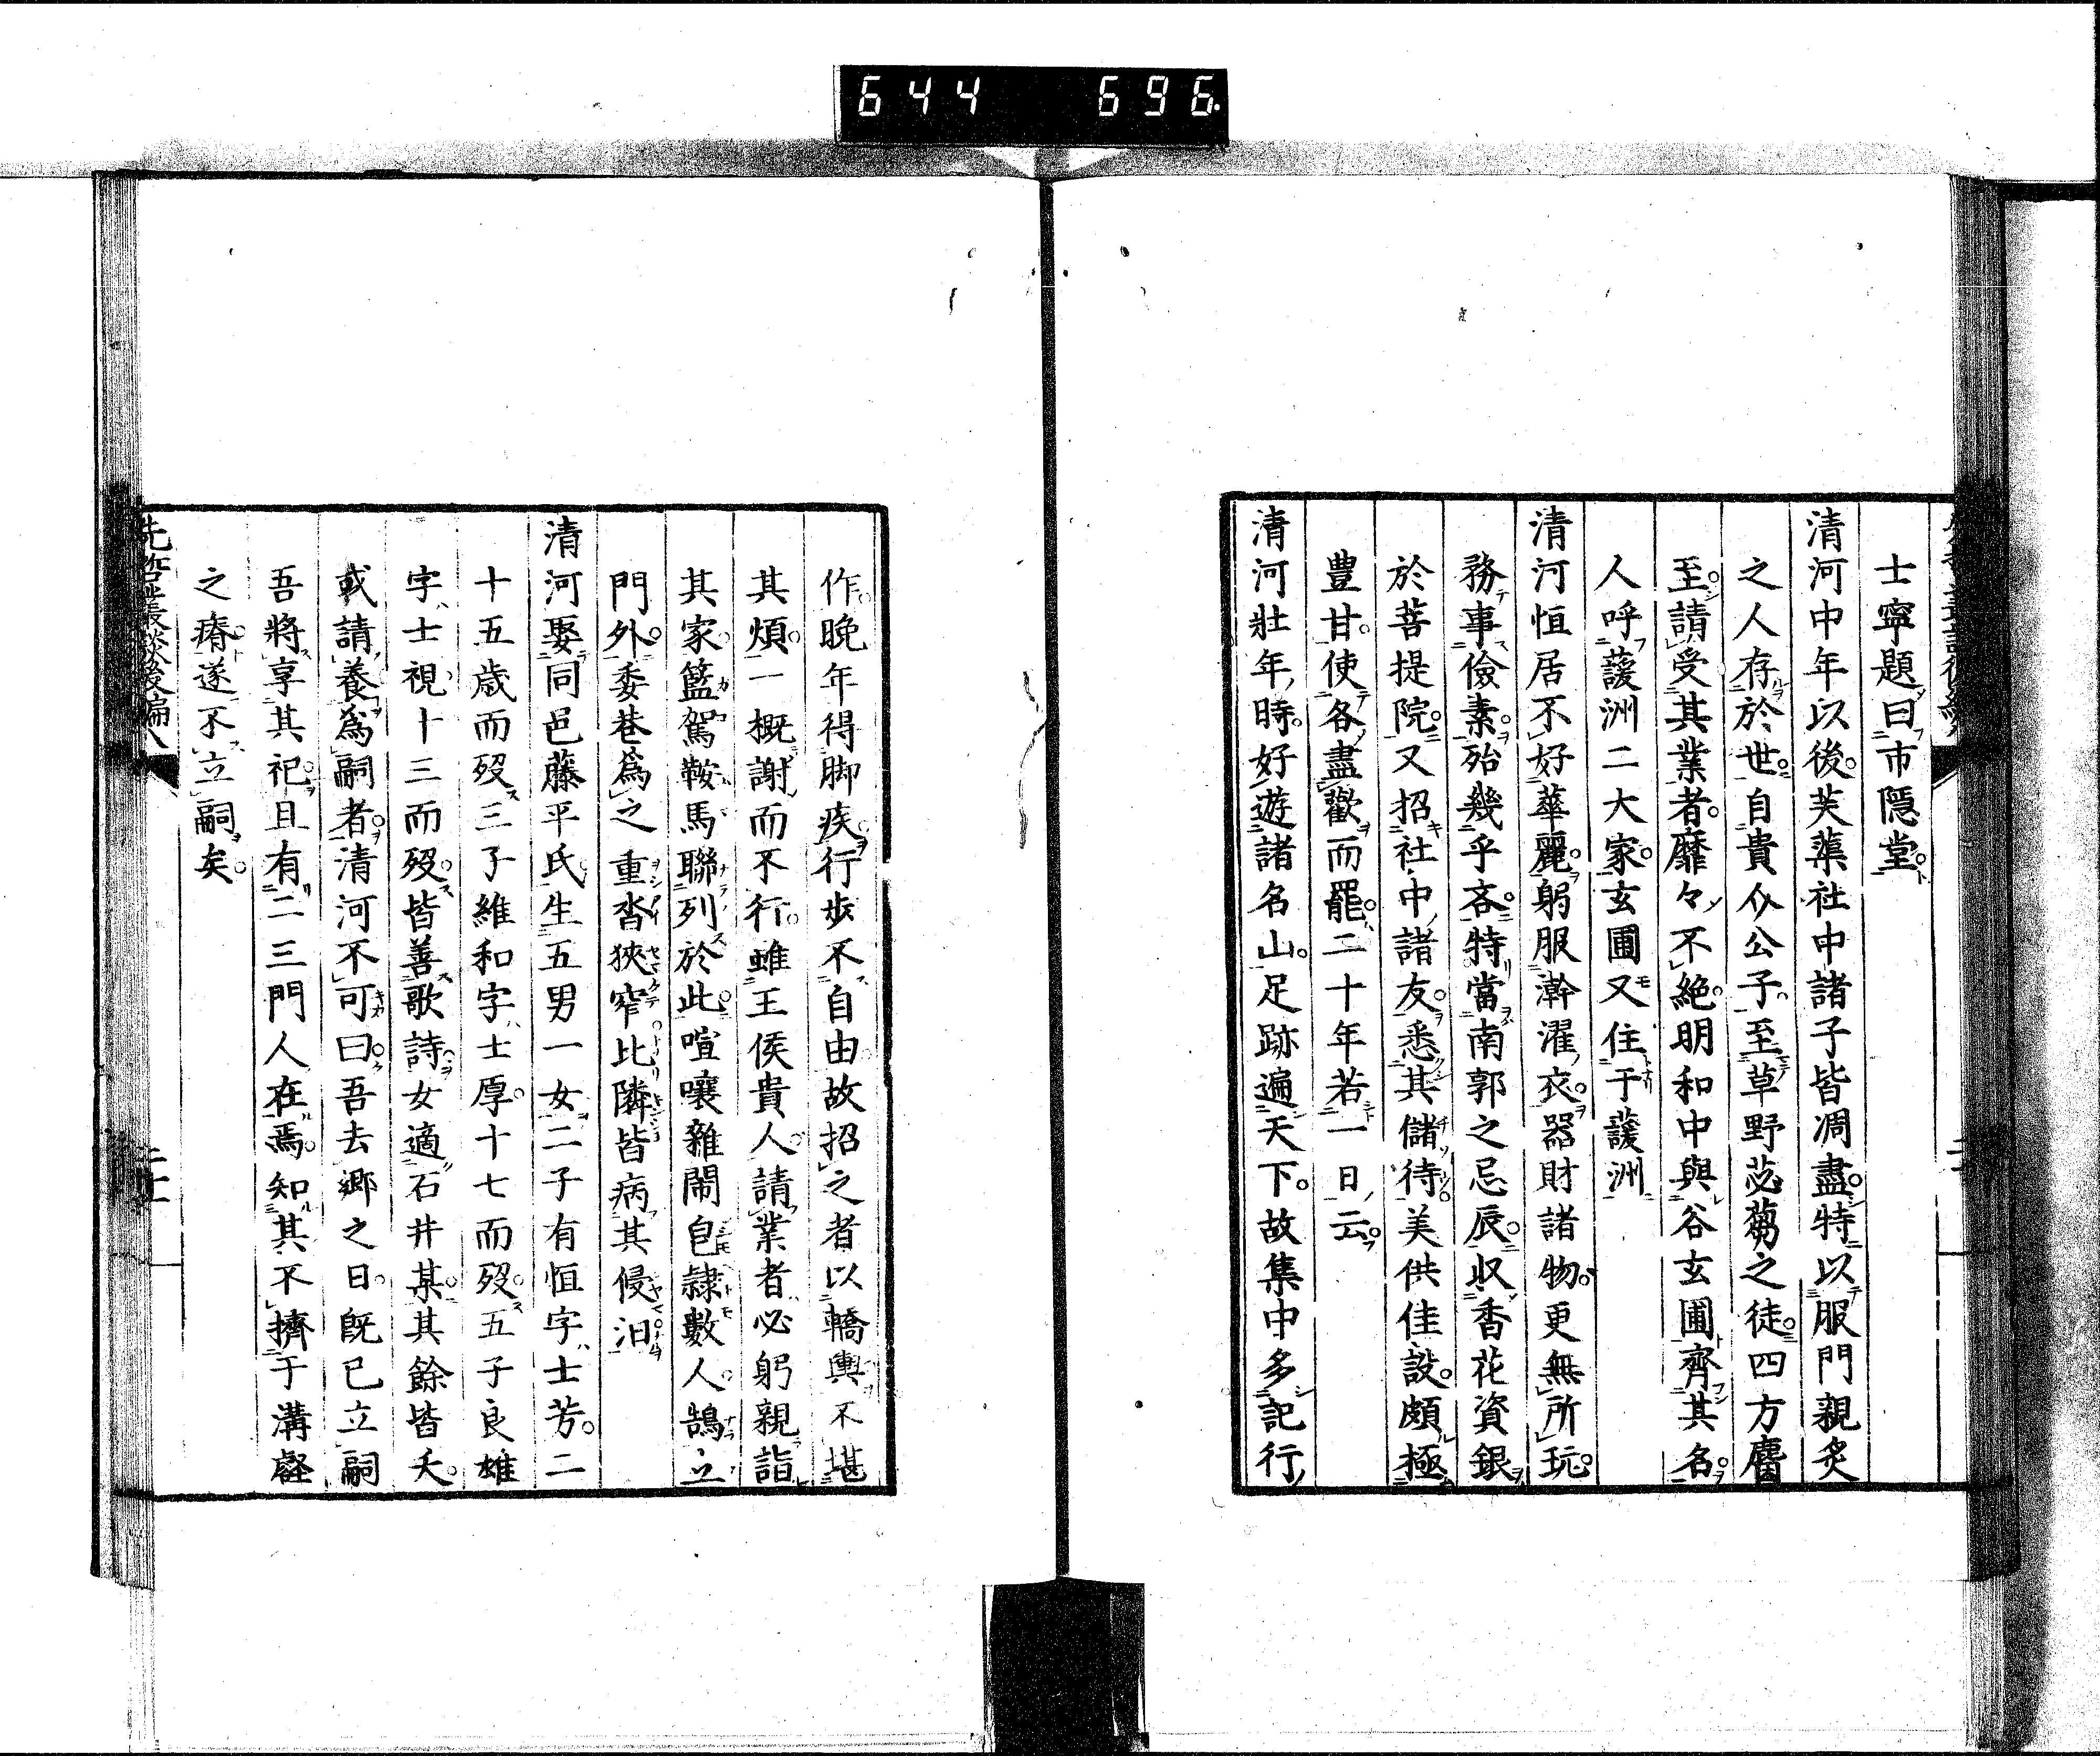 644 696
士寧題曰市隱堂
清河中年以後芙蕖社中諸子皆凋盡特以服門親炙
之人存於世自貴介公子至草野苾蒭之徒四方麕
至請受其業者靡々不絕明和中與谷玄圃齊其名
人呼護洲二大家玄圃又住于護洲
清河恒居不好華麗躬服澣濯衣器財諸物更無所玩
務事儉素殆幾乎吝特當南郭之忌辰収香花資銀
於菩提院又招社中諸友悉其儲待美供佳設頗極
豊甘使各盡歡而罷二十年若一日云
清河壯年時好遊諸名山足跡遍天下故集中多記行
作晚年得脚疾行步不自由故招之者以轎輿不堪
其煩一概謝而不行雖王侯貴人請業者必躬親詣
其家籃駕鞍馬聯列於此喧嚷雜鬧皀隷數人鵠立
門外委巷爲之重沓狹窄比隣皆病其侵汩
清河娶同邑藤平氏生五男一女二子有恒字士芳二
十五歳而歿三子維和字士厚十七而歿五子良雄
字士視十三而歿皆善歌詩女適石井某其餘皆夭
或請養爲嗣者清河不可曰吾去鄉之日既已立嗣
吾將享其祀且有二三門人在焉知其不擠于溝壑
之瘠遂不立嗣矣
先哲叢談後編八